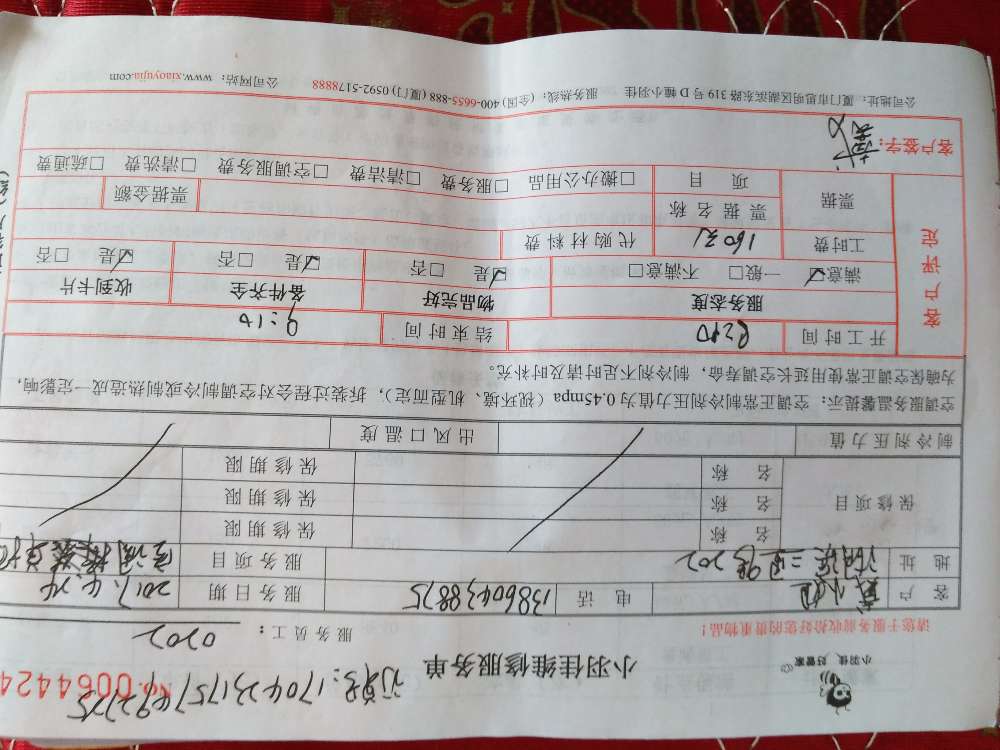 小羽佳 好管家
小羽佳维修服务单
订单号:170423175749
No.0064424
请您于服务前收拾好您的贵重物品!
服务员工: 0202
客户 电话 13860438825 服务日期 2017.4.24
地址 服务项目 空调
保修项目
名称 保修期限
名称 保修期限
名称 保修期限
制冷剂压力值 出风口温度
空调服务温馨提示: 空调正常制冷剂压力值为0.45mpa(视环境、机型而定),拆装过程会对空调制冷或制热造成一定影响,
为确保空调正常使用延长空调寿命,制冷剂不足时请及时补充。
客户评定
开工时间 8:40 结束时间 9:10
服务态度 物品完好 备件齐全 收到卡片
☑满意 一般□ 不满意□ ☑是 □否 ☑是 □否 ☑是 □否
工时费 160元 代购材料费
票据 票据名称 票据金额
项目 □搬办公用品 □服务费 □清洁费 □空调服务费 □清洗费 □疏通费
客户签字:
公司地址:厦门市思明区湖滨东路319号D幢小羽佳 服务热线:(全国)400-6655-888 (厦门)0592-5178888 公司网站:www.xiaoyujia.com